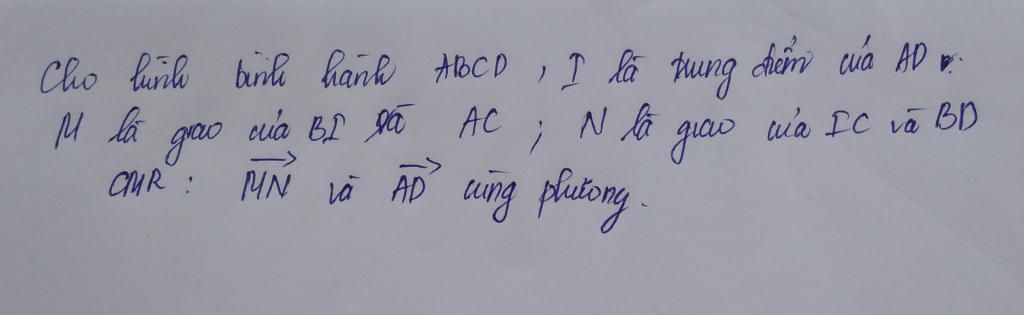 Cho hình bình hành ABCD, I là trung điểm của AD.
M là giao của BI và AC; N là giao của IC và BD
CMR: \overrightarrow{MN} và \overrightarrow{AD} cùng phương.